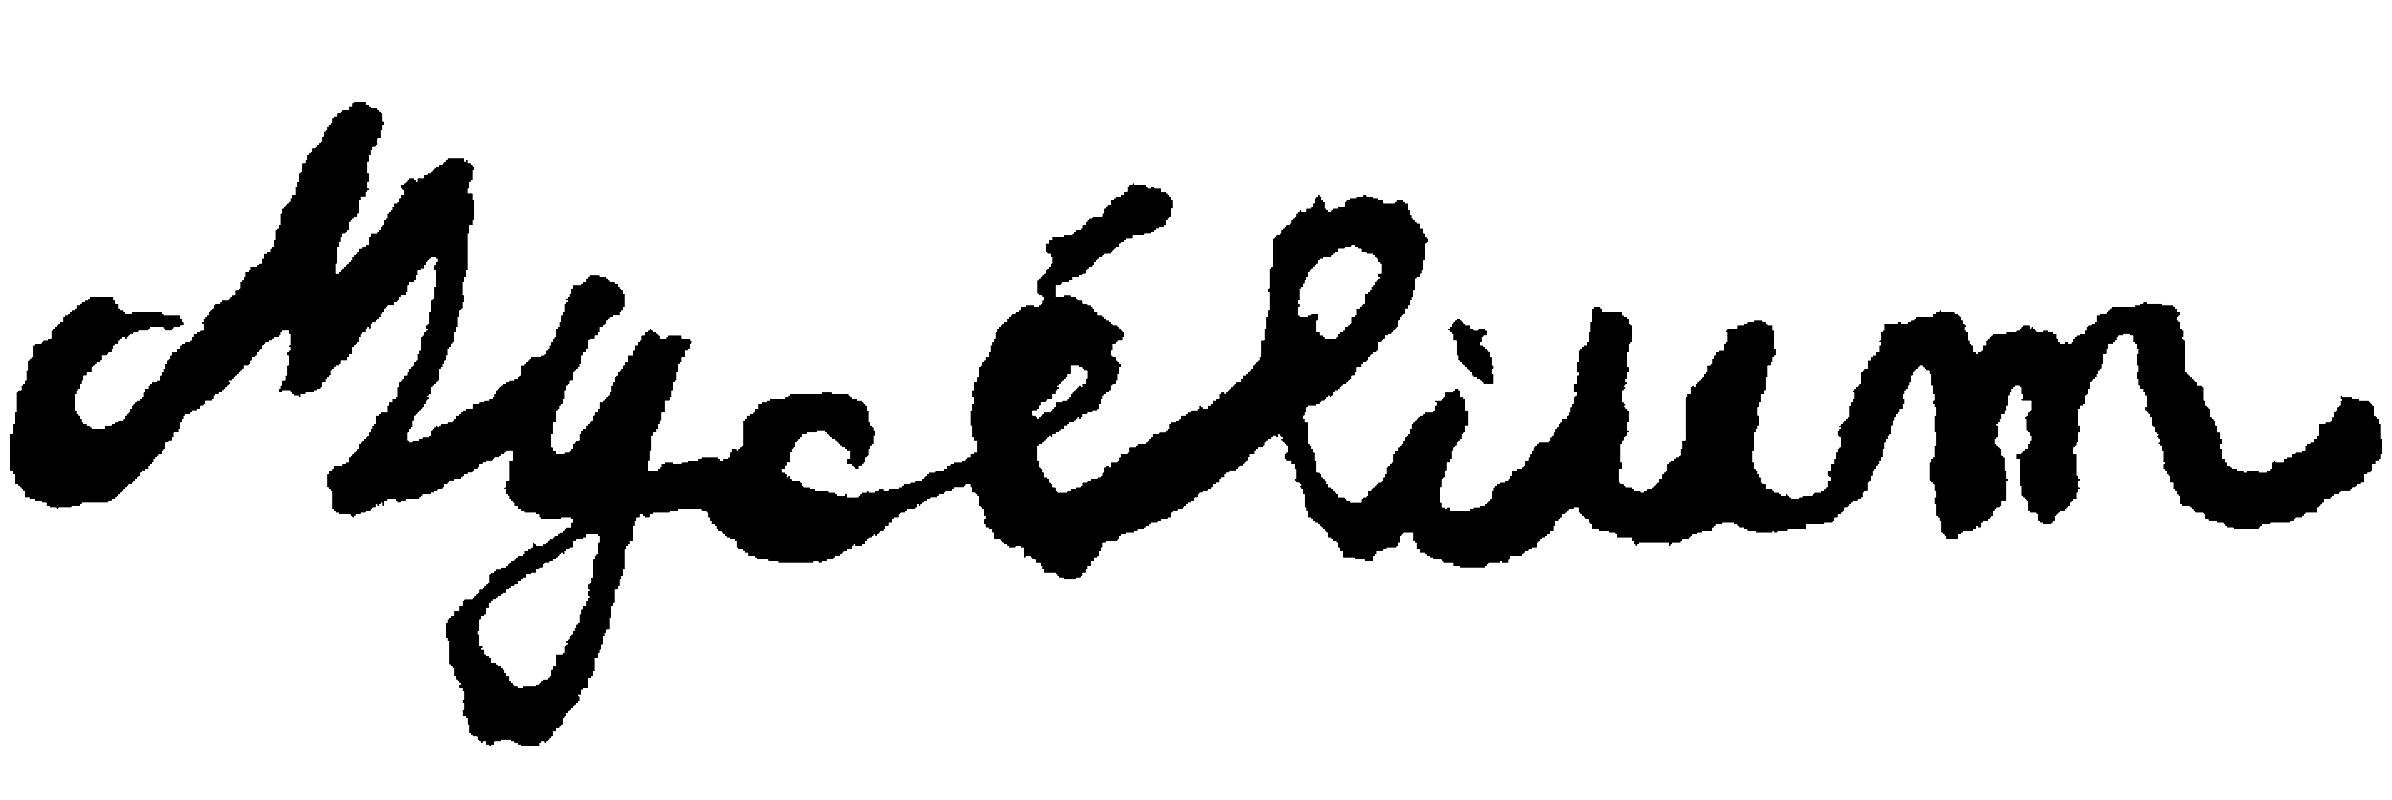 Mycélium